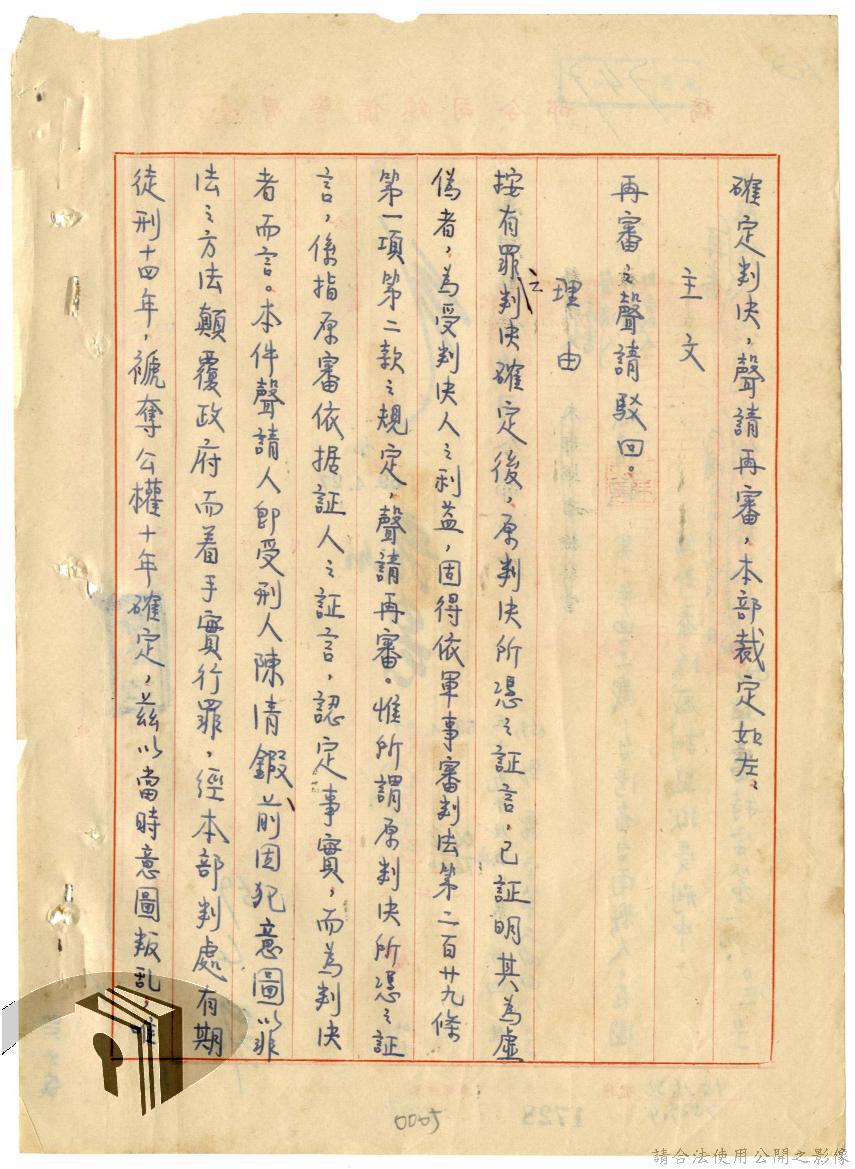 確定判決，聲請再審，本部裁定如左：
主文
再審之聲請駁回。
理由
按有罪之判決確定後，原判決所憑之証言，已証明其為虛
偽者，為受判決人之利益，固得依軍事審判法第二百廿九條
第一項第二款之規定，聲請再審。惟所謂原判決所憑之証
言，係指原審依据証人之証言，認定事實，而為判決
者而言。本件聲請人即受刑人陳清鍜，前因犯意圖以非
法之方法顛覆政府而着手實行罪，經本部判處有期
徒刑十四年，褫奪公權十年確定，茲以當時意圖叛乱，唯
0005
1728
請合法使用公開之影像